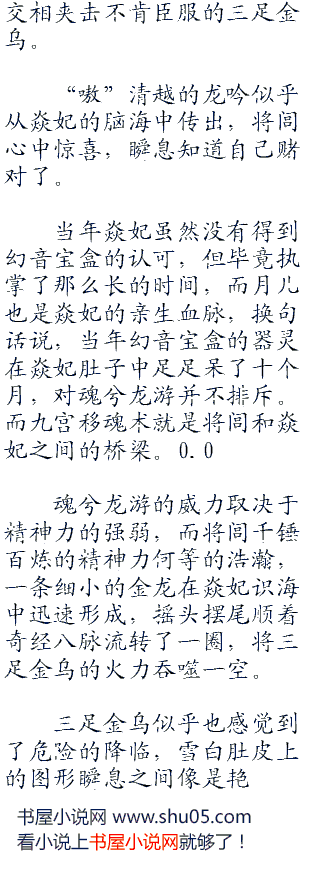 交相夹击不肯臣服的三足金
乌。
“嗷”清越的龙吟似乎
从焱妃的脑海中传出，将闾
心中惊喜，瞬息知道自己赌
对了。
当年焱妃虽然没有得到
幻音宝盒的认可，但毕竟执
掌了那么长的时间，而月儿
也是焱妃的亲生血脉，换句
话说，当年幻音宝盒的器灵
在焱妃肚子中足足呆了十个
月，对魂兮龙游并不排斥。
而九宫移魂术就是将闾和焱
妃之间的桥梁。0.0
魂兮龙游的威力取决于
精神力的强弱，而将闾千锤
百炼的精神力何等的浩瀚，
一条细小的金龙在焱妃识海
中迅速形成，摇头摆尾顺着
奇经八脉流转了一圈，将三
足金乌的火力吞噬一空。
三足金乌似乎也感觉到
了危险的降临，雪白肚皮上
的图形瞬息之间像是艳
书屋小说网 www.shu05.com
看小说上书屋小说网就够了！